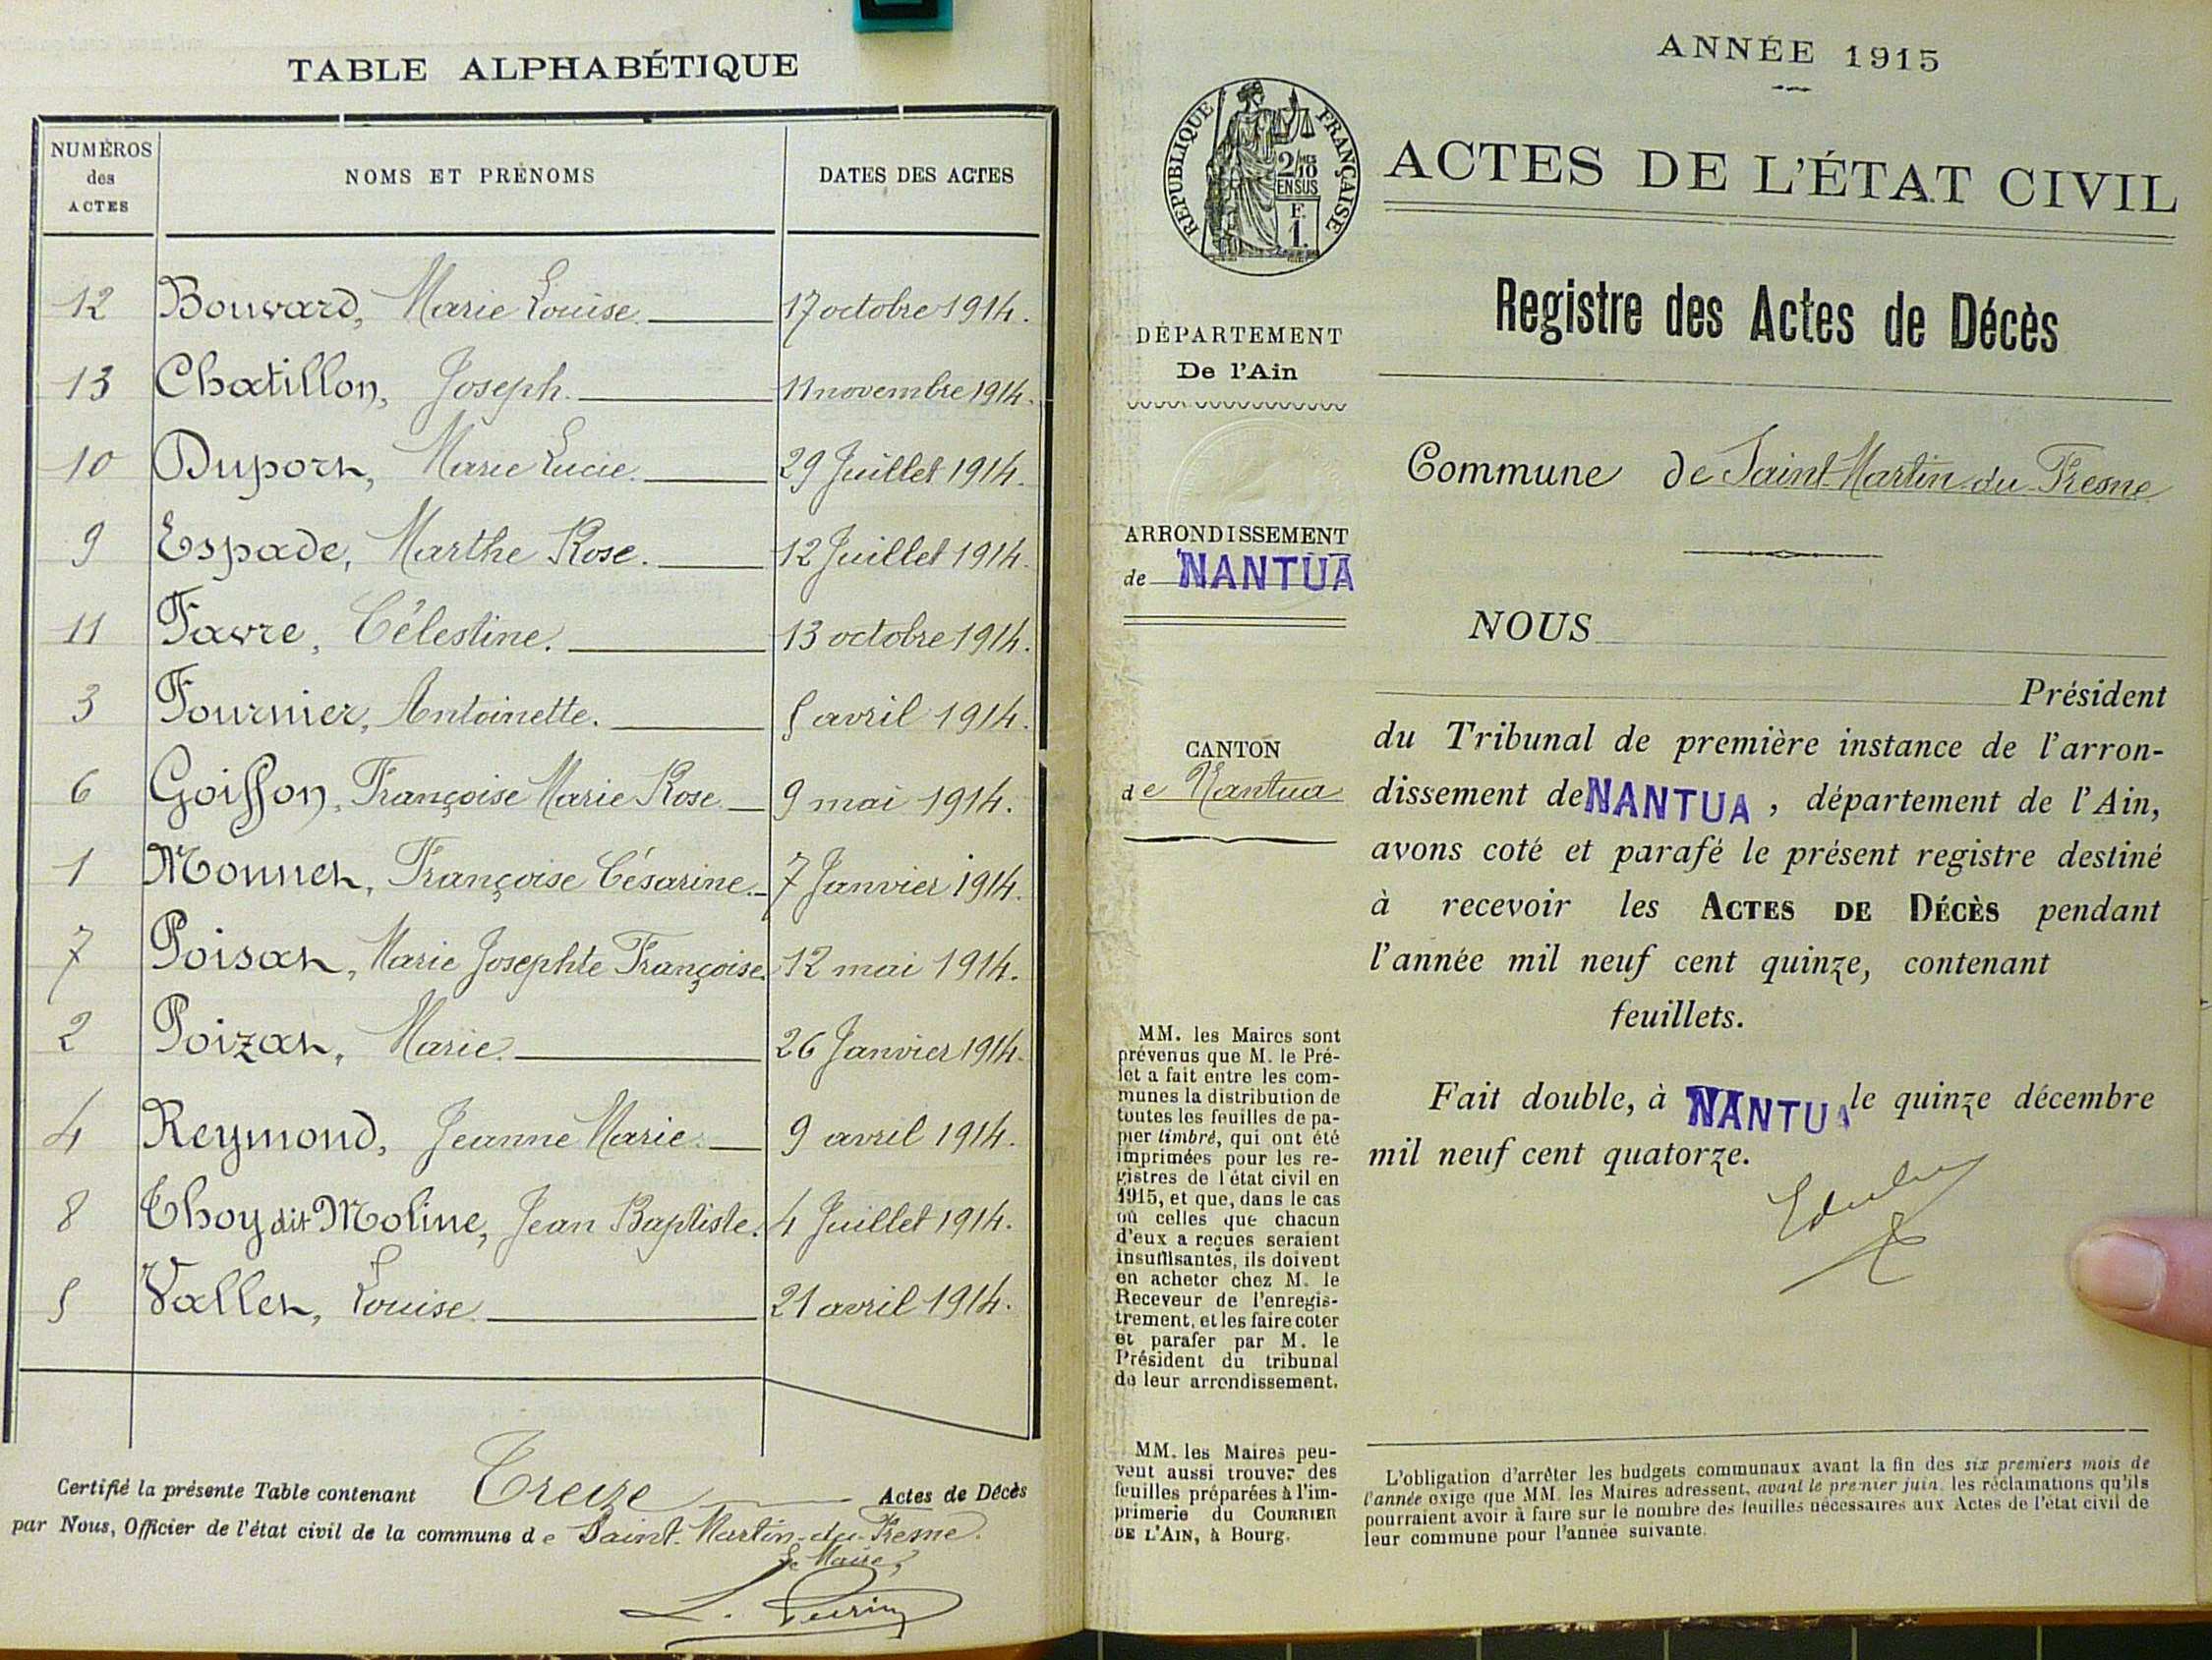 TABLE ALPHABÉTIQUE
NUMÉROS des ACTES NOMS ET PRÉNOMS DATES DES ACTES
12 Bouvard, Marie Louise 17 octobre 1914.
13 Chatillon, Joseph. 11 novembre 1914.
10 Duport, Marie Lucie. 29 Juillet 1914.
9 Espade, Marthe Rose. 12 Juillet 1914.
11 Favre, Célestine. 13 octobre 1914.
3 Fournier, Antoinette. 5 avril 1914.
6 Goiffon, Françoise Marie Rose 9 mai 1914.
1 Monnet, Françoise Césarine. 7 Janvier 1914.
7 Poisat, Marie Josephte Françoise. 12 mai 1914.
2 Poizat, Marie. 26 Janvier 1914.
4 Reymond, Jeanne Marie. 9 avril 1914.
8 Thoy dit Moline, Jean Baptiste. 4 Juillet 1914.
5 Vallet, Louise 21 avril 1914.
Certifié la présente Table contenant Treize Actes de Décès
par Nous, Officier de l'état civil de la commune de Saint-Martin-du-Fresne.
Le Maire,
ANNÉE 1915
RÉPUBLIQUE FRANÇAISE
2/10 EN SUS
F. 1.
ACTES DE L'ÉTAT CIVIL
Registre des Actes de Décès
DÉPARTEMENT
De l'Ain
Commune de Saint-Martin-du-Fresne
ARRONDISSEMENT
de NANTUA
NOUS
Président
du Tribunal de première instance de l'arron-
dissement de NANTUA, département de l'Ain,
avons coté et parafé le présent registre destiné
à recevoir les ACTES DE DÉCÈS pendant
l'année mil neuf cent quinze, contenant
feuillets.
Fait double, à NANTUA le quinze décembre
mil neuf cent quatorze.
CANTON
de Nantua
MM. les Maires sont
prévenus que M. le Pré-
fet a fait entre les com-
munes la distribution de
toutes les feuilles de pa-
pier timbré, qui ont été
imprimées pour les re-
gistres de l'état civil en
1915, et que, dans le cas
où celles que chacun
d'eux a reçues seraient
insuffisantes, ils doivent
en acheter chez M. le
Receveur de l'enregis-
trement, et les faire coter
et parafer par M. le
Président du tribunal
de leur arrondissement.
MM. les Maires peu-
vent aussi trouver des
feuilles préparées à l'im-
primerie du COURRIER
DE L'AIN, à Bourg.
L'obligation d'arrêter les budgets communaux avant la fin des six premiers mois de
l'année exige que MM. les Maires adressent, avant le premier juin, les réclamations qu'ils
pourraient avoir à faire sur le nombre des feuilles nécessaires aux Actes de l'état civil de
leur commune pour l'année suivante.